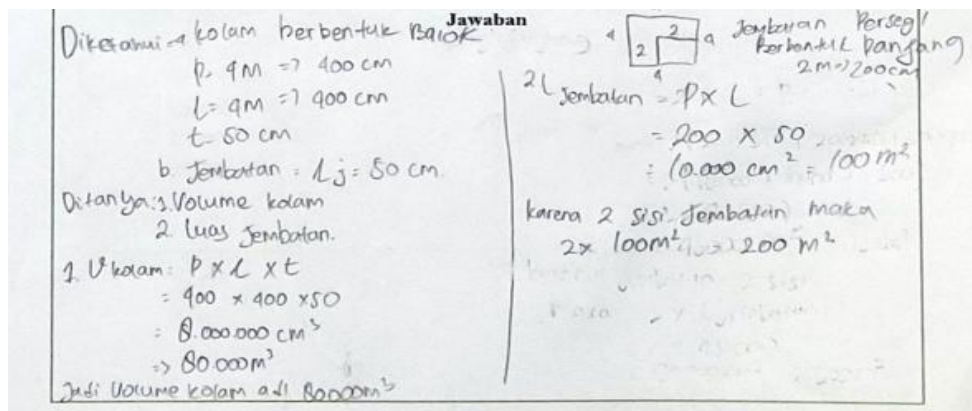 Jawaban
Diketahui → kolam berbentuk Balok
p. 4m => 400 cm
l = 4m => 400 cm
t = 50 cm
b. Jembatan : Lj = 50 cm.
Ditanya: 1. Volume kolam
2 luas Jembatan.
1. V kolam : P x L x t
= 400 x 400 x 50
= 8.000.000 cm³
=> 80.000 m³
Jadi Volume kolam adl 80000m³
4 2 2 4 4
Jembatan Persegi
berbentuk Panjang
2m => 200cm
2 L Jembatan = P x L
= 200 x 50
= 10.000 cm² = 100 m²
karena 2 sisi Jembatan maka
2x 100m² 200 m²